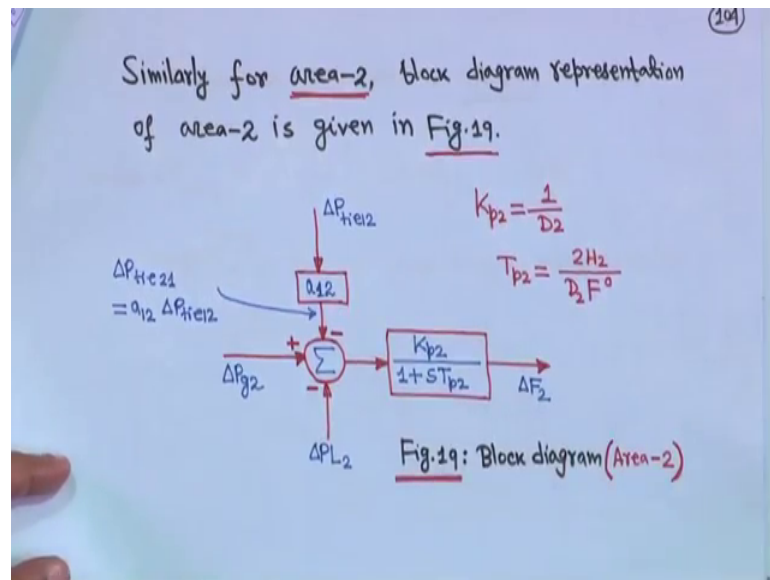 104
Similarly for area-2, block diagram representation
of area-2 is given in Fig.19.
ΔPtie12
Kp2 = 1/D2
Tp2 = 2H2/D2F°
a12
ΔPtie21
= a12 ΔPtie12
-
+
Σ
Kp2
1+STp2
ΔPg2
ΔF2
-
ΔPL2
Fig.19: Block diagram (Area-2)